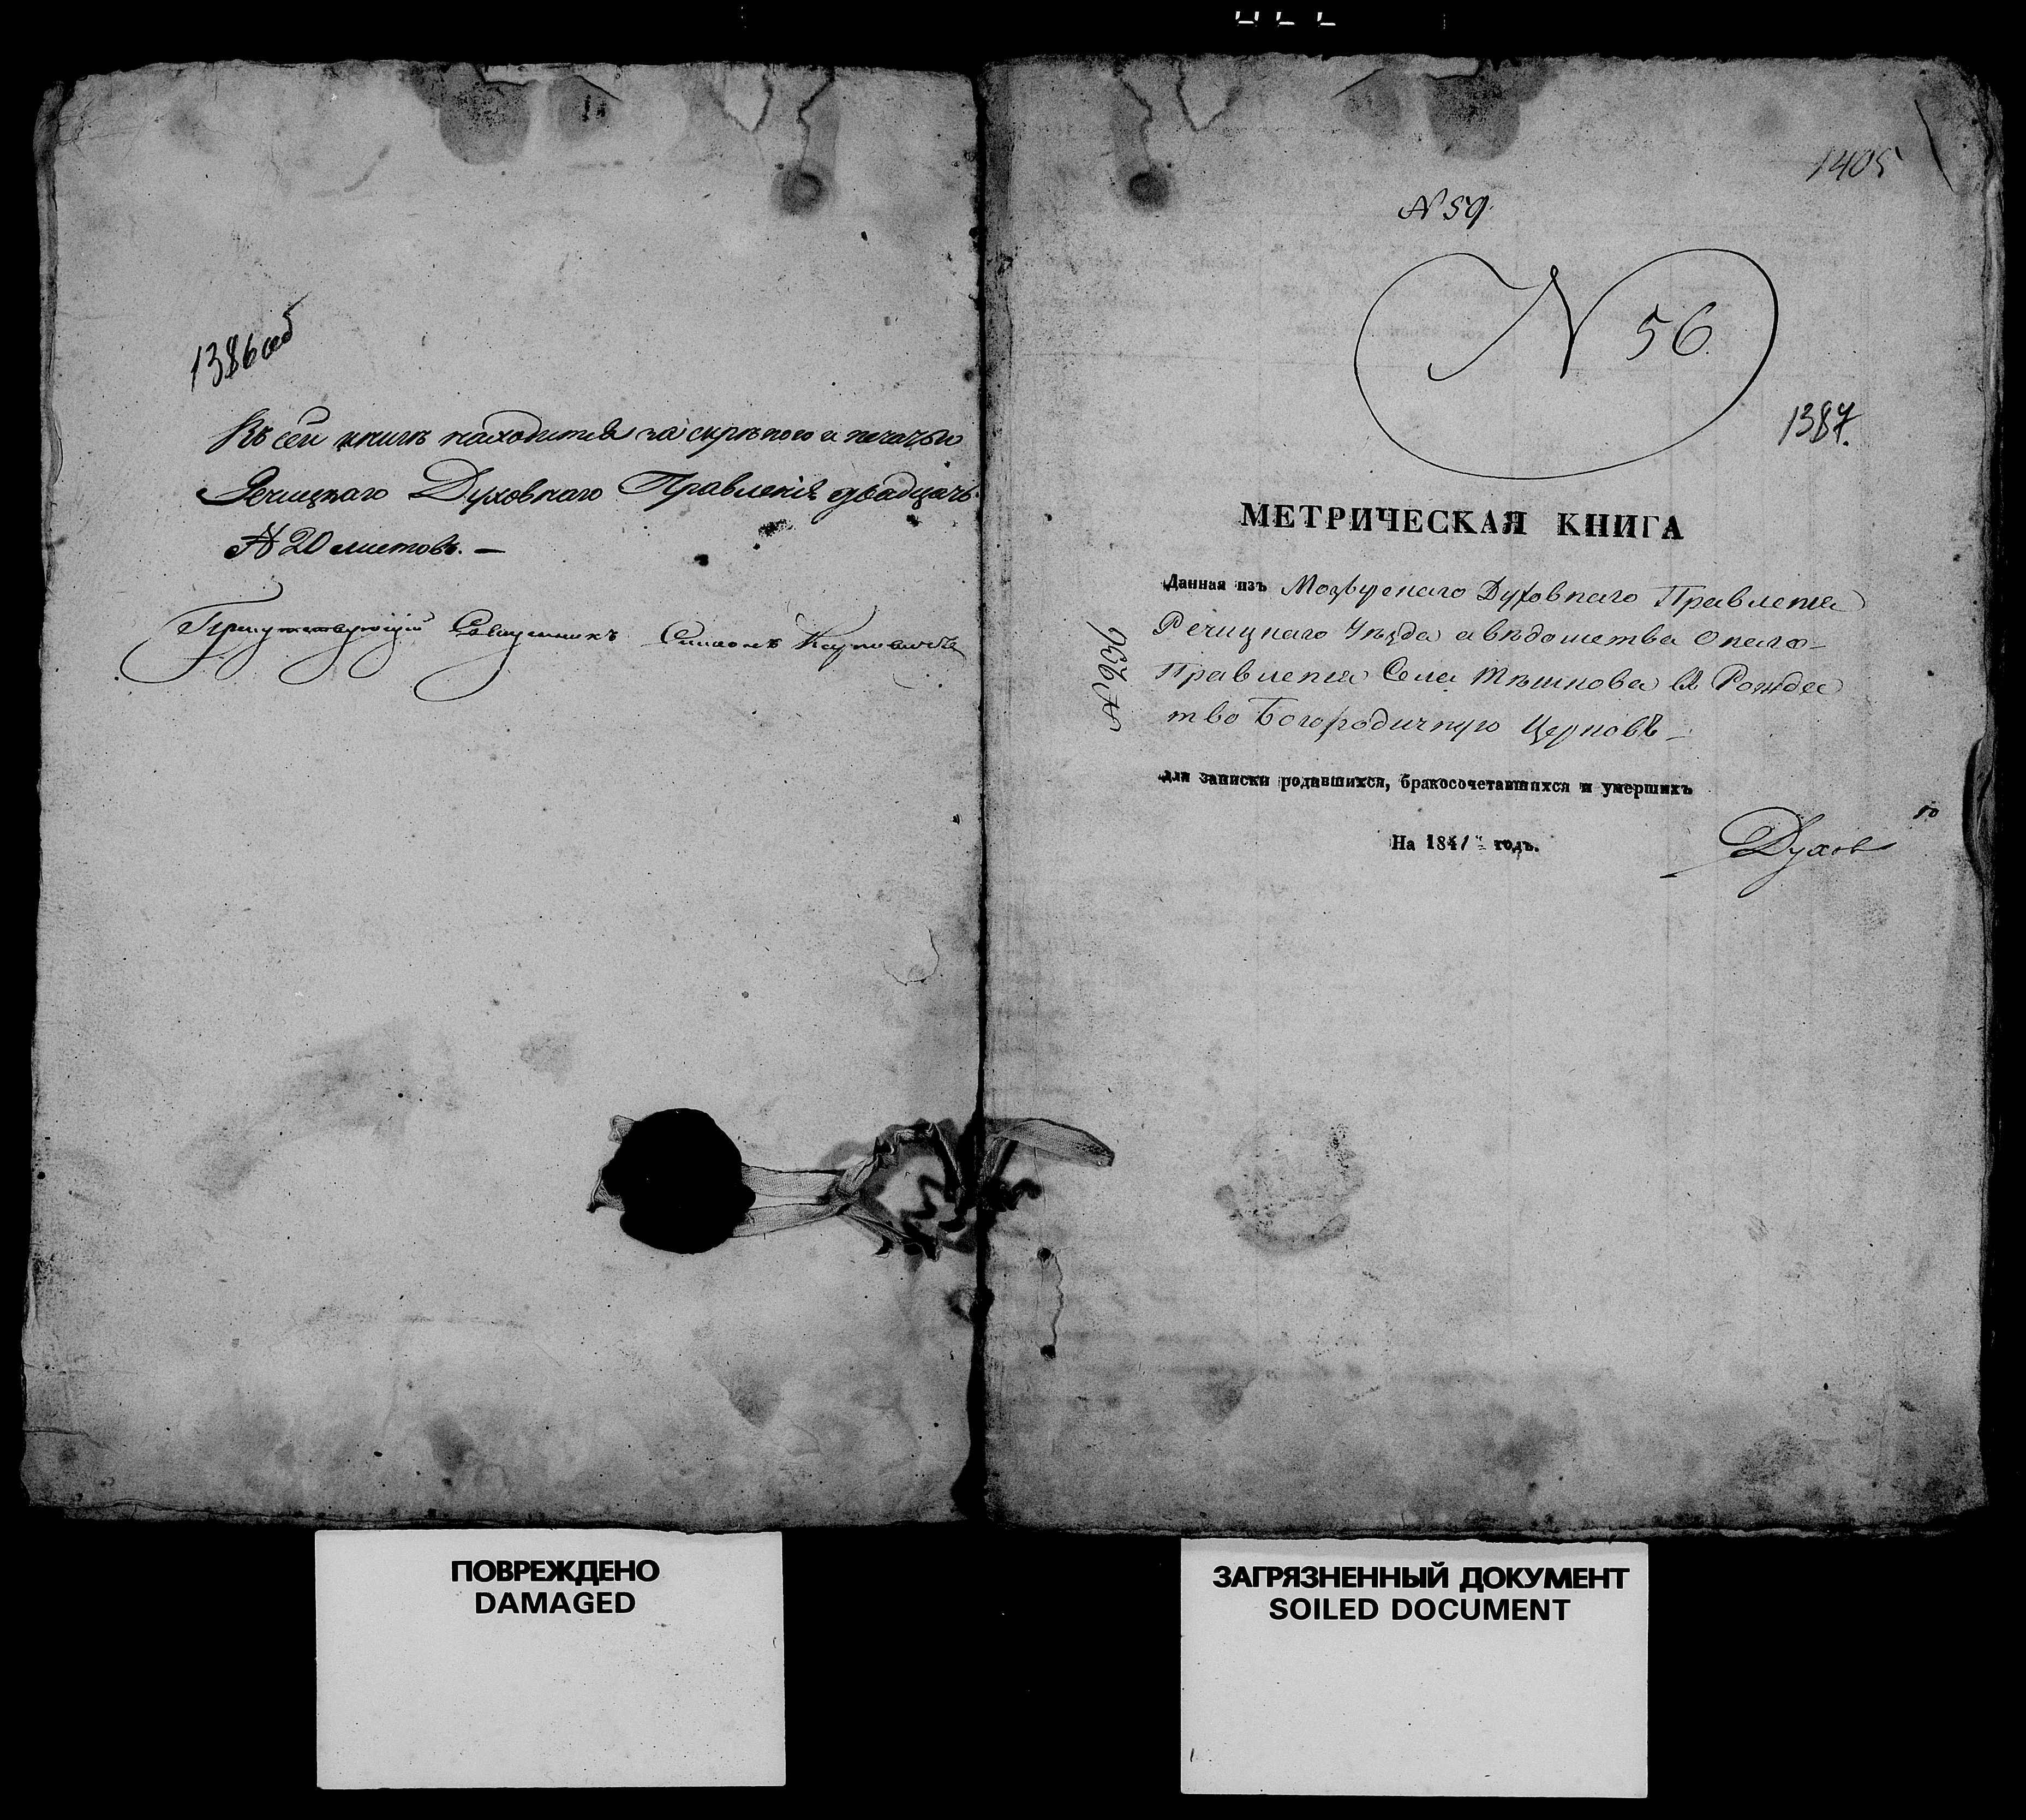 1386 об
Въ сей книгѣ находится за скрѣпою и печатью
Речицкаго Духовнаго Правленія двадцать
№ 20 листовъ. —
Присутствующій Священникъ Симеонъ
1405
N 59.
N 56.
1387.
МЕТРИЧЕСКАЯ КНИГА
Данная изъ Мозырскаго Духовнаго Правленія
Речицкаго Уѣзда а вѣдомства онаго
Правленія Села въ Рождес
тво Богородичную Церковь —
N 236
для записки родившихся, бракосочетавшихся и умершихъ
На 1841 годъ.
Духов
ПОВРЕЖДЕНО
DAMAGED
ЗАГРЯЗНЕННЫЙ ДОКУМЕНТ
SOILED DOCUMENT